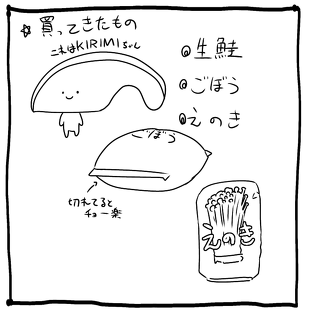 ☆買ってきたもの
これはKIRIMIちゃん
◎生鮭
◎ごぼう
◎えのき
ごぼう
切れてると
チョー楽
えのき